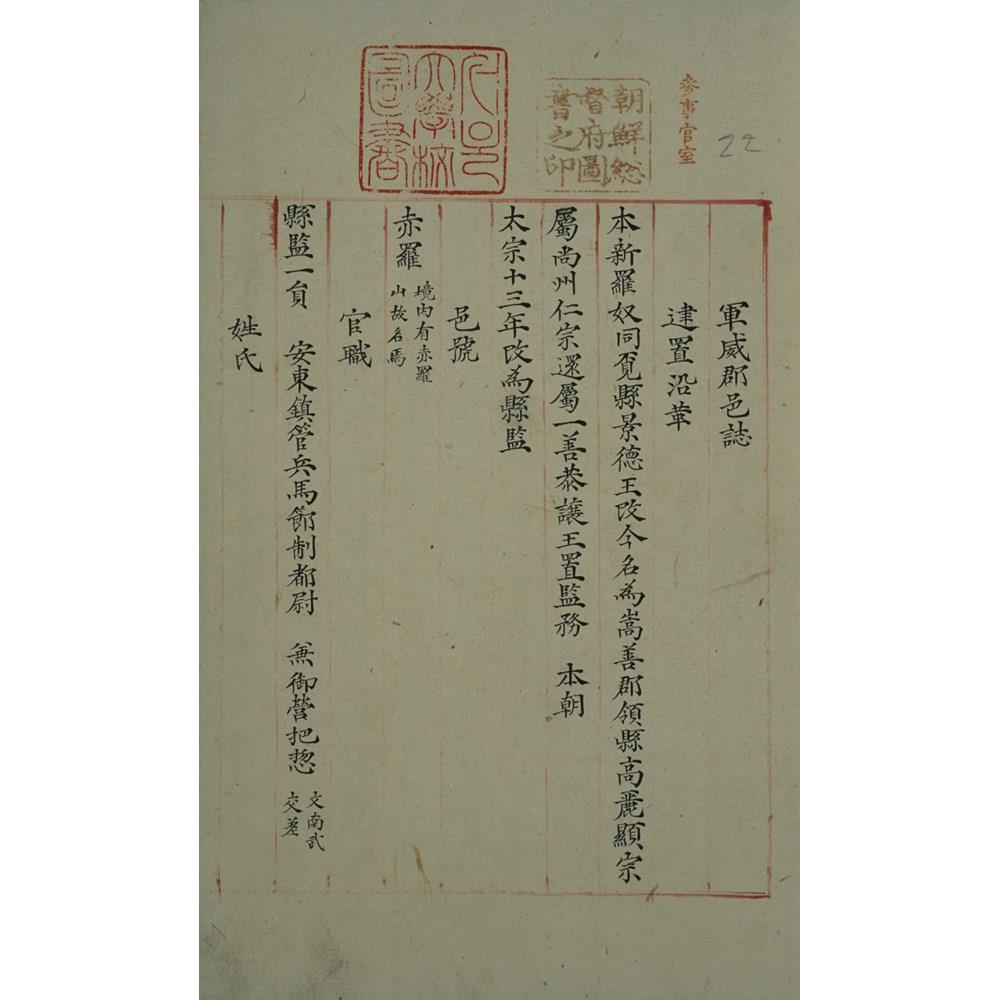 22
參事官室
朝鮮総
督府圖
書之印
大學校
圖書
軍威郡邑誌
建置沿革
本新羅奴同覓縣景德王改今名為嵩善郡領縣高麗顯宗
屬尚州仁宗還屬一善恭讓王置監務 本朝
太宗十三年改為縣監
邑號
赤羅 境內有赤羅
山故名焉
官職
縣監一員 安東鎮管兵馬節制都尉 兼御營把摠 文南武
交差
姓氏